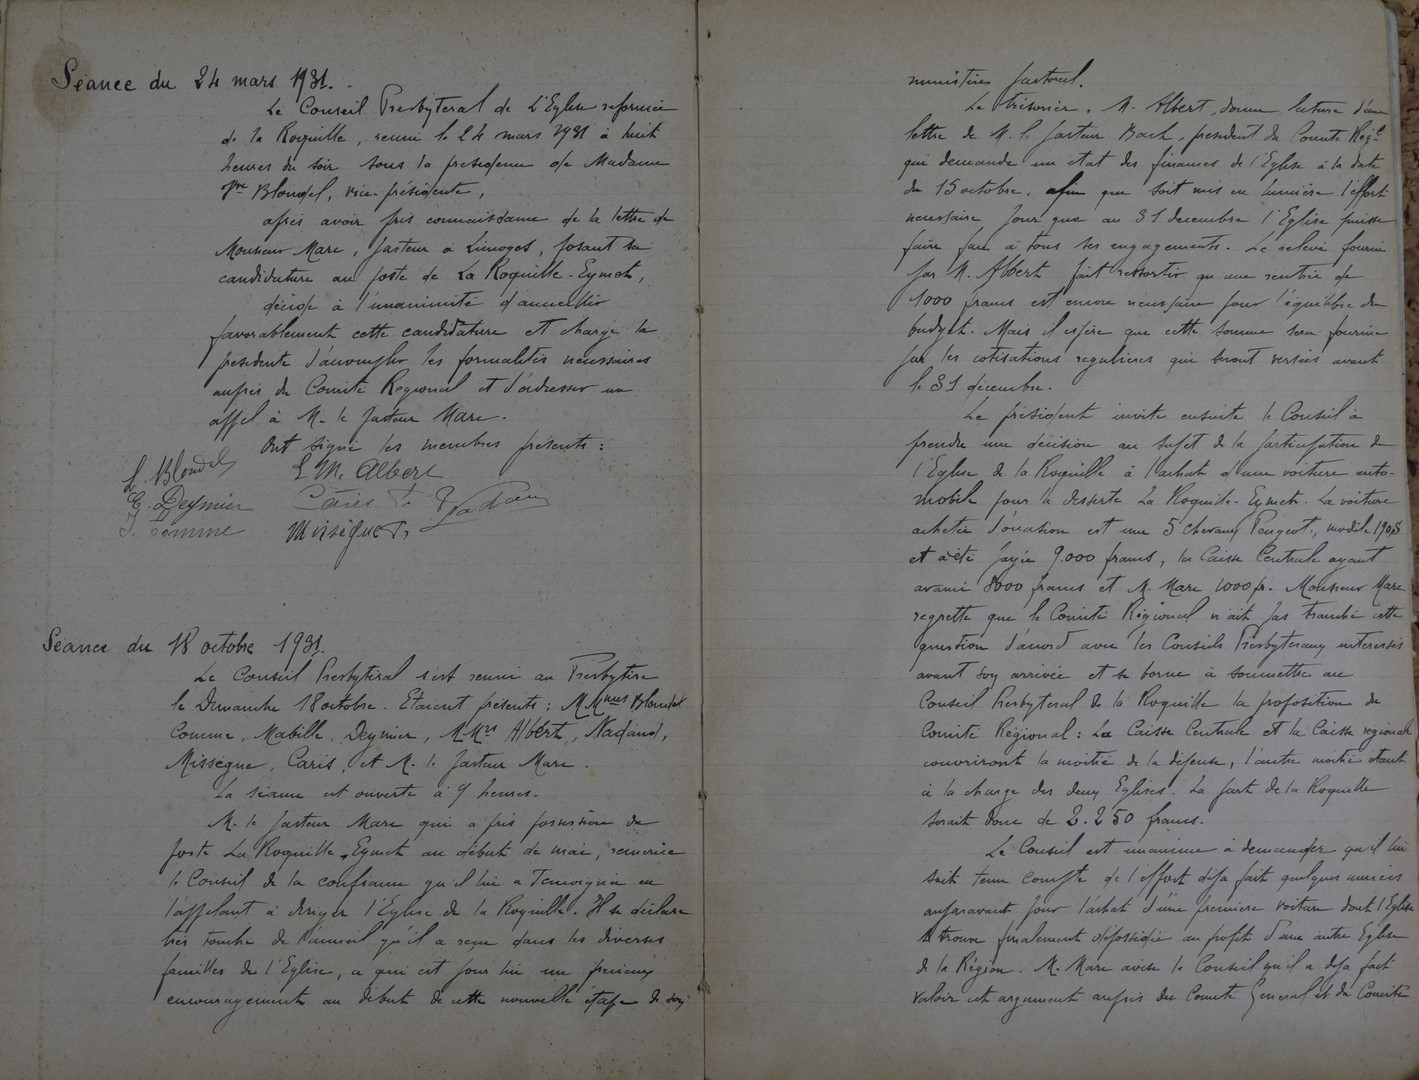 Séance du 24 mars 1931.
Le Conseil Presbyteral de l'Eglise reformée
de la Roquille, reuni le 24 mars 1931 à huit
heures du soir sous la presidence de Madame
Vve Blondel, vice-présidente,
après avoir pris connaissance de la lettre de
Monsieur Marc, pasteur à Limoges, posant sa
candidature au poste de La Roquille-Eymet,
décide à l'unanimité d'accueillir
favorablement cette candidature et charge la
presidente d'accomplir les formalités nécessaires
auprès du Comité Regional et d'adresser un
appel à M. le pasteur Marc.
Ont signé les membres présents:
L. Blondel L M. Albert
E. Deymier Caris Nadaud
J. Comme Missègue
Séance du 18 octobre 1931.
Le Conseil Presbytéral s'est reuni au Presbytère
le Dimanche 18 octobre. Etaient présents: MMmes Blondel
Comme, Mabille, Deymier, MMrs Albert, Nadaud,
Missègue, Caris, et M. le pasteur Marc.
La séance est ouverte à 9 heures.
M. le pasteur Marc qui a pris possession du
poste La Roquille-Eymet au début de mai, remercie
le Conseil de la confiance qu'il lui a témoignée en
l'appelant à diriger l'Eglise de la Roquille. Il se déclare
très touché de l'accueil qu'il a reçu dans les diverses
familles de l'Eglise, ce qui est pour lui un précieux
encouragement au début de cette nouvelle étape de son
ministère pastoral.
Le trésorier, M. Albert, donne lecture d'une
lettre de M. le pasteur Bach, président du Comité Règl
qui demande un etat des finances de l'Eglise à la date
du 15 octobre, afin que soit mis en lumière l'effort
nécessaire pour que au 31 decembre l'Eglise puisse
faire face à tous ses engagements. Le relevé fourni
par M. Albert fait ressortir qu'une rentrée de
1000 francs est encore nécessaire pour l'équilibre du
budget. Mais il espère que cette somme sera fournie
par les cotisations regulières qui seront versées avant
le 31 décembre.
Le président invite ensuite le Conseil à
prendre une décision au sujet de la participation de
l'Eglise de la Roquille à l'achat d'une voiture auto-
mobile pour la desserte La Roquille-Eymet. La voiture
achetée d'occasion est une 5 chevaux Peugeot, modèle
et a été payée 9.000 francs, la Caisse Centrale ayant
avancé 8000 francs et M. Marc 1000 fr. Monsieur Marc
regrette que le Comité Régional n'ait pas tranché cette
question d'accord avec les Conseils Presbyteraux interessés
avant son arrivée et se borne à soumettre au
Conseil Presbyteral de la Roquille la proposition du
Comité Régional: La Caisse Centrale et la Caisse régionale
couvriront la moitié de la dépense, l'autre moitié étant
à la charge des deux Eglises. La part de la Roquille
serait donc de 2.250 francs.
Le Conseil est unanime à demander qu'il lui
soit tenu compte de l'effort déjà fait quelques années
auparavant pour l'achat d'une première voiture dont l'Eglise
se trouve finalement dépossédée au profit d'une autre Eglise
de la Région. M. Marc avise le Conseil qu'il a déjà fait
valoir cet argument auprès du Comité General et du Comité